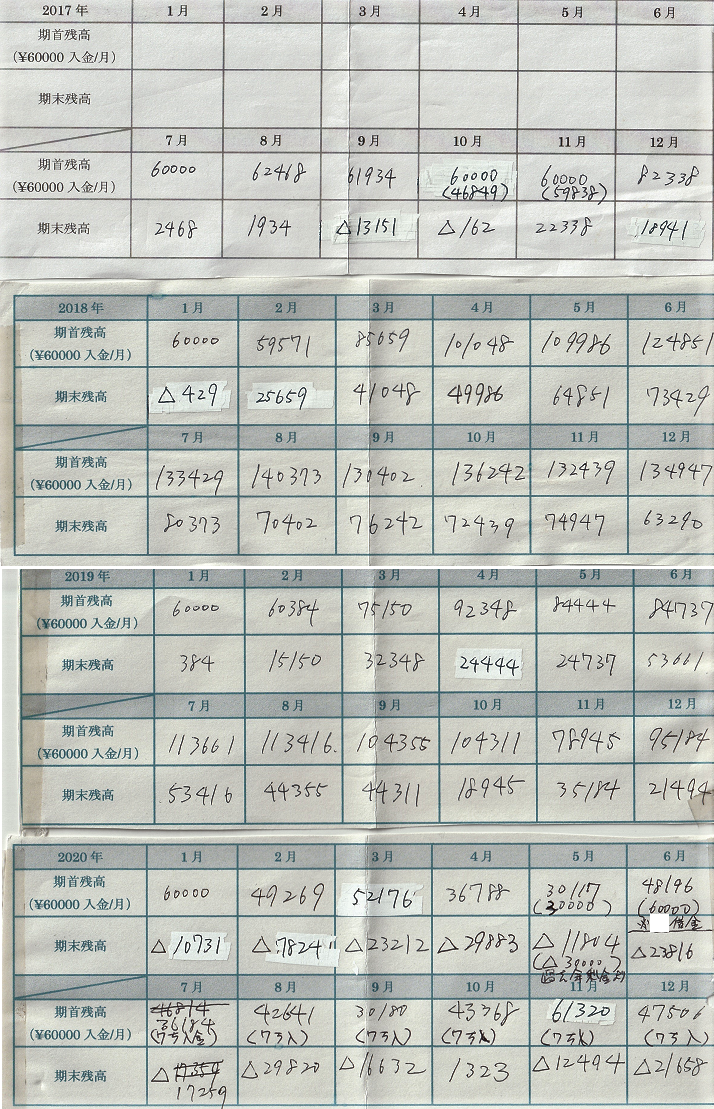 2017年 1月 2月 3月 4月 5月 6月
期首残高
(¥60000入金/月)
期末残高
7月 8月 9月 10月 11月 12月
期首残高 60000 62468 61934 60000 60000 82338
(¥60000入金/月) (46849) (59838)
期末残高 2468 1934 △13151 △162 22338 18941
2018年 1月 2月 3月 4月 5月 6月
期首残高 60000 59571 85659 101048 109986 124851
(¥60000入金/月)
期末残高 △429 25659 41048 49986 64851 73429
7月 8月 9月 10月 11月 12月
期首残高 133429 140373 130402 136242 132439 134947
(¥60000入金/月)
期末残高 80373 70402 76242 72439 74947 63290
2019年 1月 2月 3月 4月 5月 6月
期首残高 60000 60384 75150 92348 84444 84737
(¥60000入金/月)
期末残高 384 15150 32348 24444 24737 53661
7月 8月 9月 10月 11月 12月
期首残高 113661 113416 104355 104311 78945 95184
(¥60000入金/月)
期末残高 53416 44355 44311 18945 35184 21494
2020年 1月 2月 3月 4月 5月 6月
期首残高 60000 49269 52176 36788 30117 48196
(¥60000入金/月) (30000) (60000)
借金
期末残高 △10731 △7824 △23212 △29883 △11804 △23816
(△30000)
7月 8月 9月 10月 11月 12月
期首残高 46814 42641 30180 43368 61320 47506
36184
(¥60000入金/月) (7万入金) (7万入) (7万入) (7万入) (7万入) (7万入)
期末残高 △17359 △29820 △16632 1323 △12494 △21658
17259